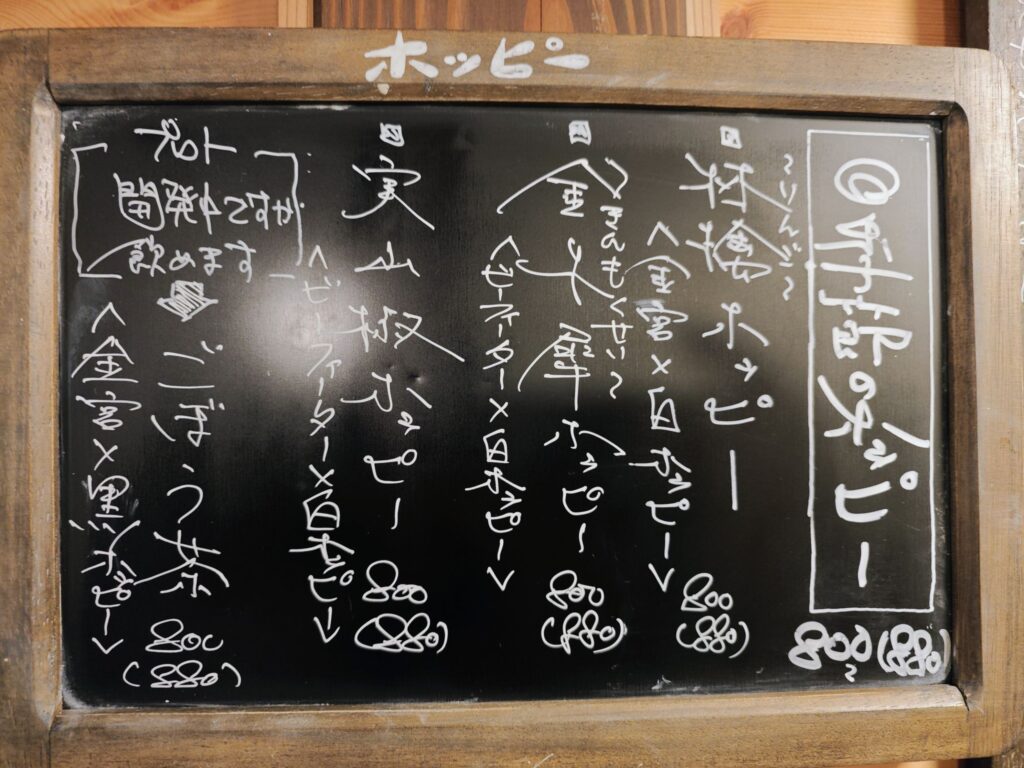 ホッピー
ホッピー
800~
(880)
ホッピー
<金宮×白ホッピー>
800
(880)
金木犀ホッピー
~きんもくせい~
<ビーフィーター×白ホッピー>
800
(880)
実山椒ホッピー
<ビーフィーター×白ホッピー>
800
(880)
開発中
ごぼう茶
<金宮×黒ホッピー>
800
(880)